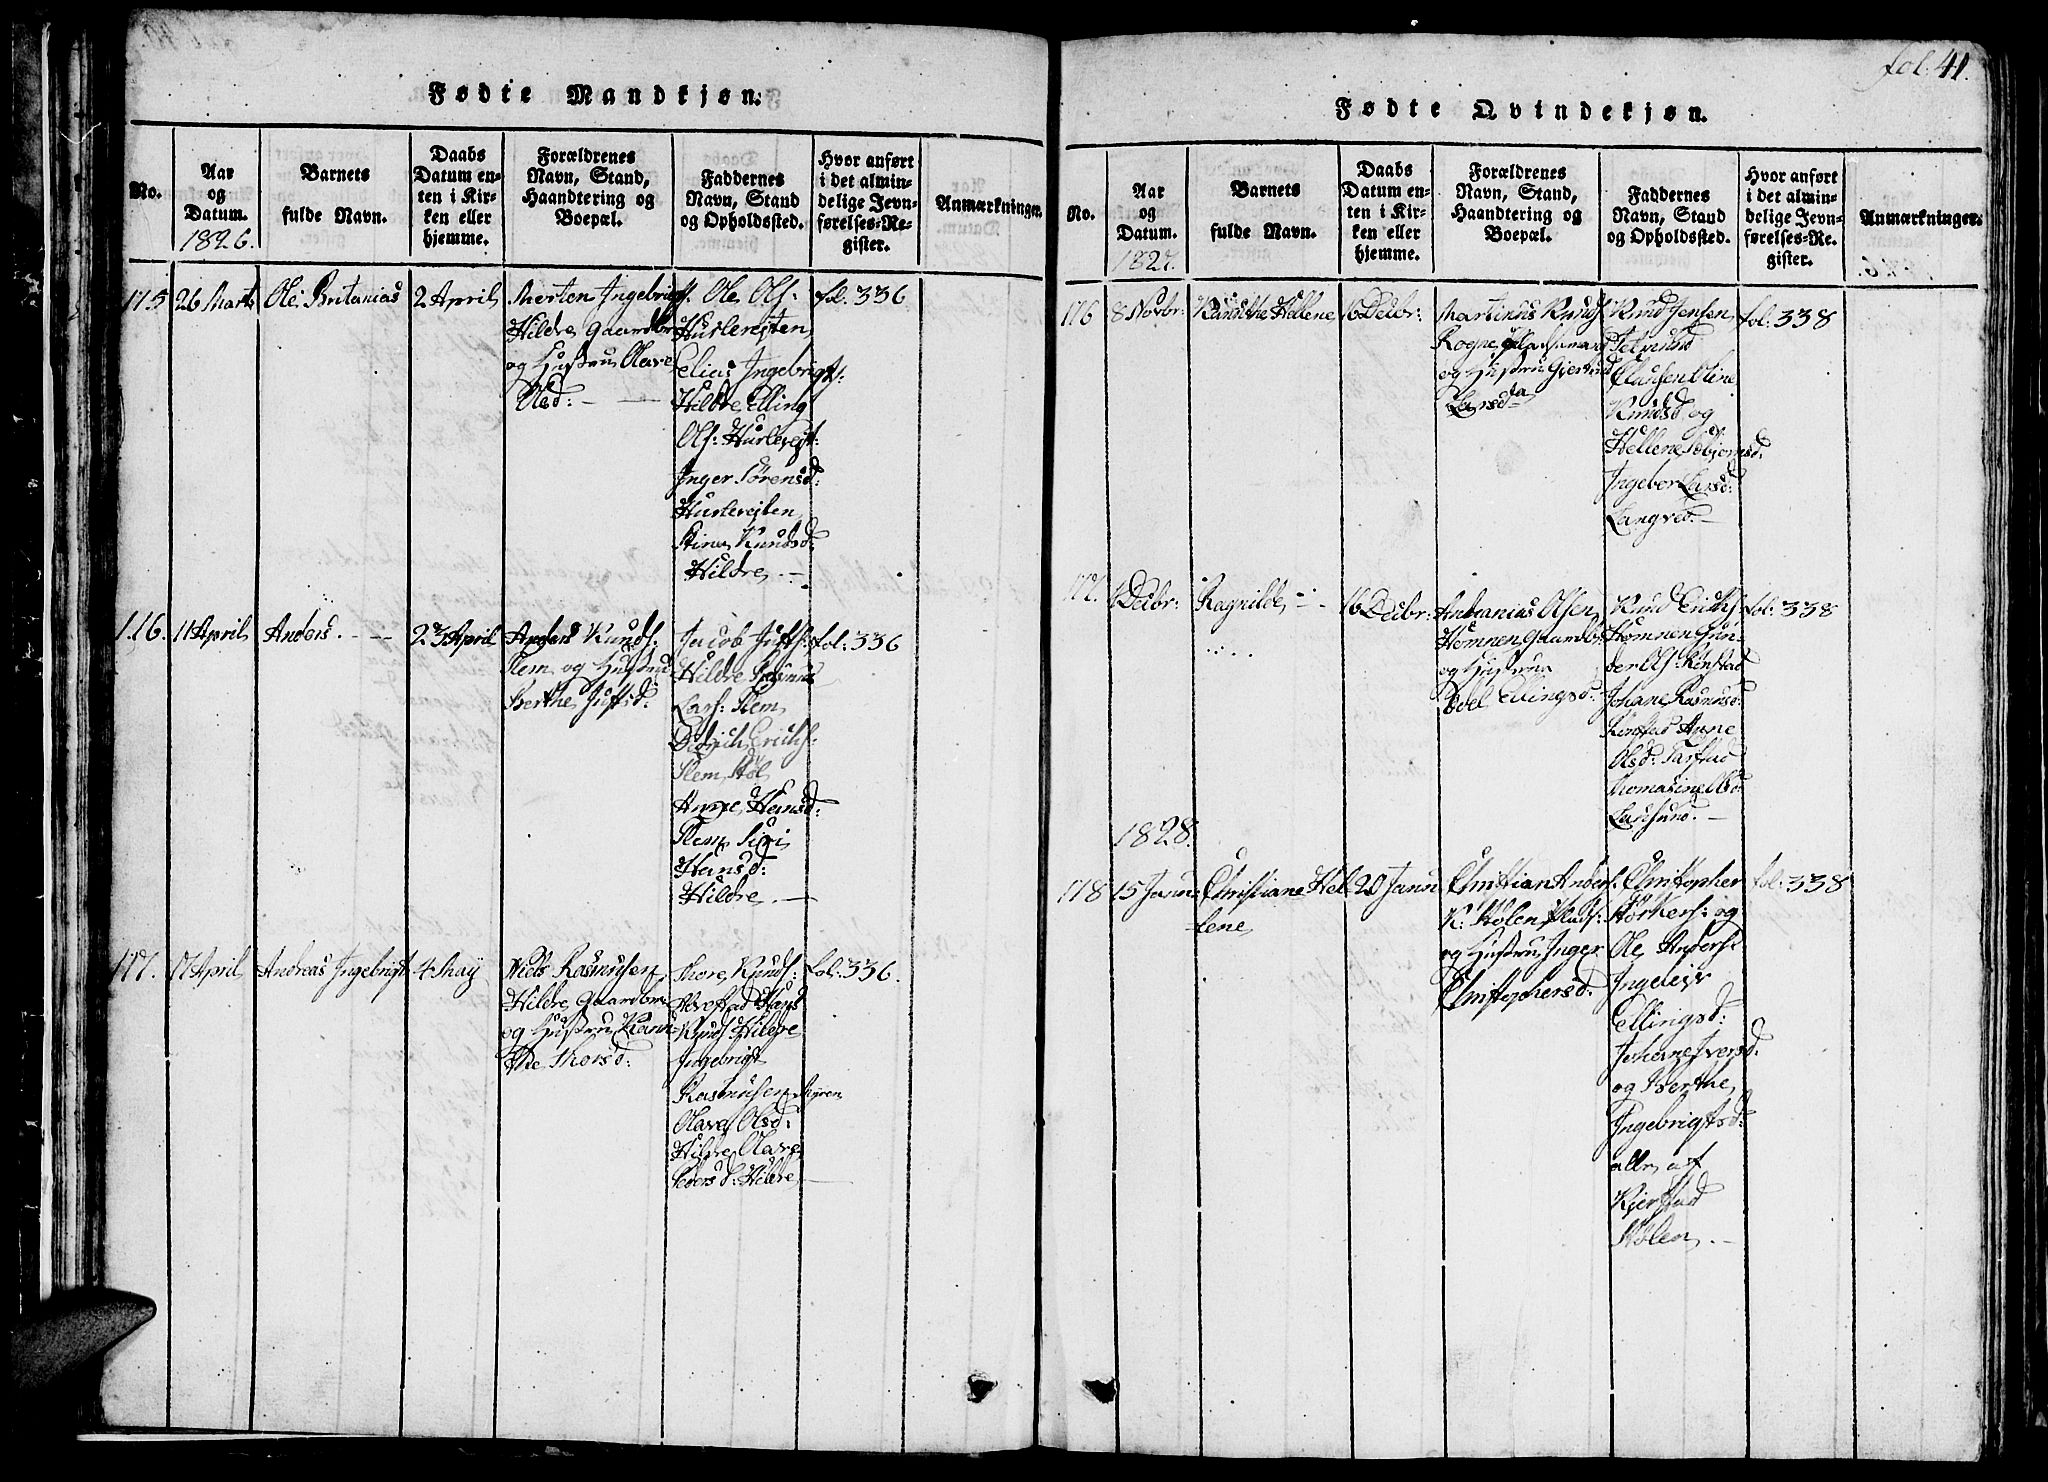 Fødte Mandkjøn.
No.
Aar
og
Datum.
1826.
Barnets
fulde Navn.
Daabs
Datum en-
ten i Kir-
ken eller
hjemme.
Forældrenes
Navn, Stand,
Haandtering og
Boepæl.
Faddernes
Navn, Stand
og Opholdssted.
Hvor anført
i det almin-
delige Jevn-
førelses-Re-
gister.
Anmærkninger.
175
26 Marts
Ole Britanias
2 April
Morten Ingebrigts:
Hildre Gaardbr
og Hustru Olave
Olsd: -
Ole Ols:
Hurlerejten
Elias Ingebrigts:
Hildre Elling
Ols: Hurlerejt:
Inger Sørensd:
Hurlerejten
Stine Knudsd:
Hildre. -
fol: 336
116.
11 April
Anders. -
23 April
Anders Knuds:
Slem og Hustru
Berthe Jüfsd:
Jacob Jüfs:
Hildre Rasmus
Lars: Slem
Didrich Erichs:
Slem Støl
Anne Hansd:
Slem Siri
Hansd:
Hildre. -
fol: 336
117.
17 April
Andreas Ingebrigt
4 May
Niels Rasmusen
Hildre Gaardbr
og Hustru Kann-
the Thorsd:
Thore Knuds:
Hans
Knuds: Hildre
Ingebrigt
Rasmusen Myren
Olave Olsd:
Hildre Olave
Pedersd: Hildre -
fol: 336.
fol: 41.
Fødte Qvindekjøn.
No.
Aar
og
Datum.
1827.
Barnets
fulde Navn.
Daabs
Datum en-
ten i Kir-
ken eller
hjemme.
Forældrenes
Navn, Stand,
Haandtering og
Boepæl.
Faddernes
Navn, Stand
og Opholdssted.
Hvor anført
i det almin-
delige Jevn-
førelses-Re-
gister.
Anmærkninger.
176
8 Novbr:
Kanuthe Hellene
16 Decbr:
Martinus Knuds:
Rogne
og Hustru Gjertrud
Larsda
Knud Jensen
Tetmund
Clausen Oline
Knudsd og
Hellene Esbjørnsd:
Ingebor Larsd:
Langved. -
fol: 338
177.
1 Decbr:
Ragnilde -
16 Decbr:
Andranias Olsen
Hemnen Gaardbr:
og Hustru
Boel Ellingsd: -
Knud Erichs:
Hemnen Gun-
der Ols: Rønstad
Johane Rasmusd:
Anne
Olsd:
Thomasine Olsd:
fol: 338
1828.
178
15 Janu:
Christiane Hel-
lene
20 Janu:
Christian Anders:
K: Hølen Plads:
og Hustru Inger
Christophersd:
Christopher
Størkers: og
Ole Anders:
Ingeleje
Ellingsd:
Johane Iversd:
og Berthe
Ingebrigtsd:
alle af
Kjerstad
Hølen. -
fol: 338